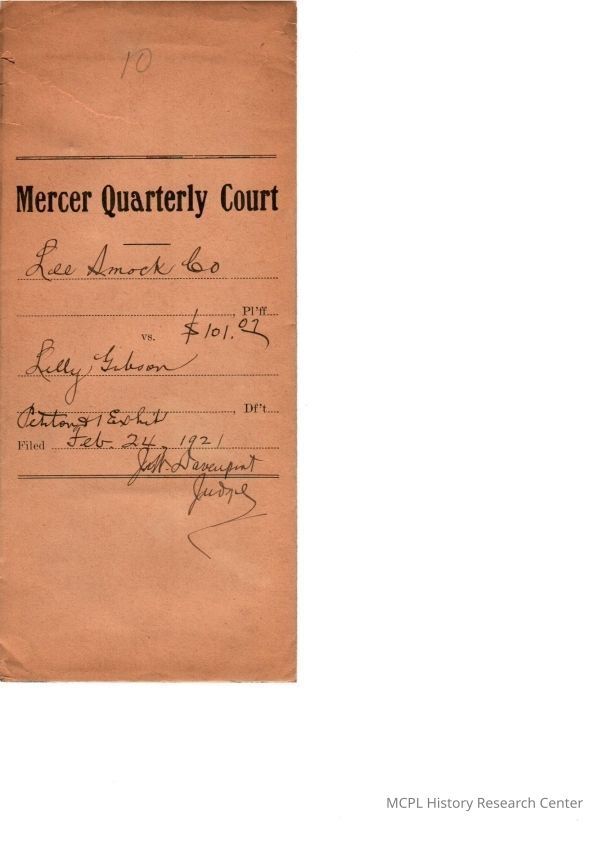 10
Mercer Quarterly Court
Lee Smock Co
Pl'ff.
vs. $101.07
Lilly Gibson
Df't.
Petiton & 1 Exhibit
Filed Feb. 24, 1921
Davenport
Judge
MCPL History Research Center